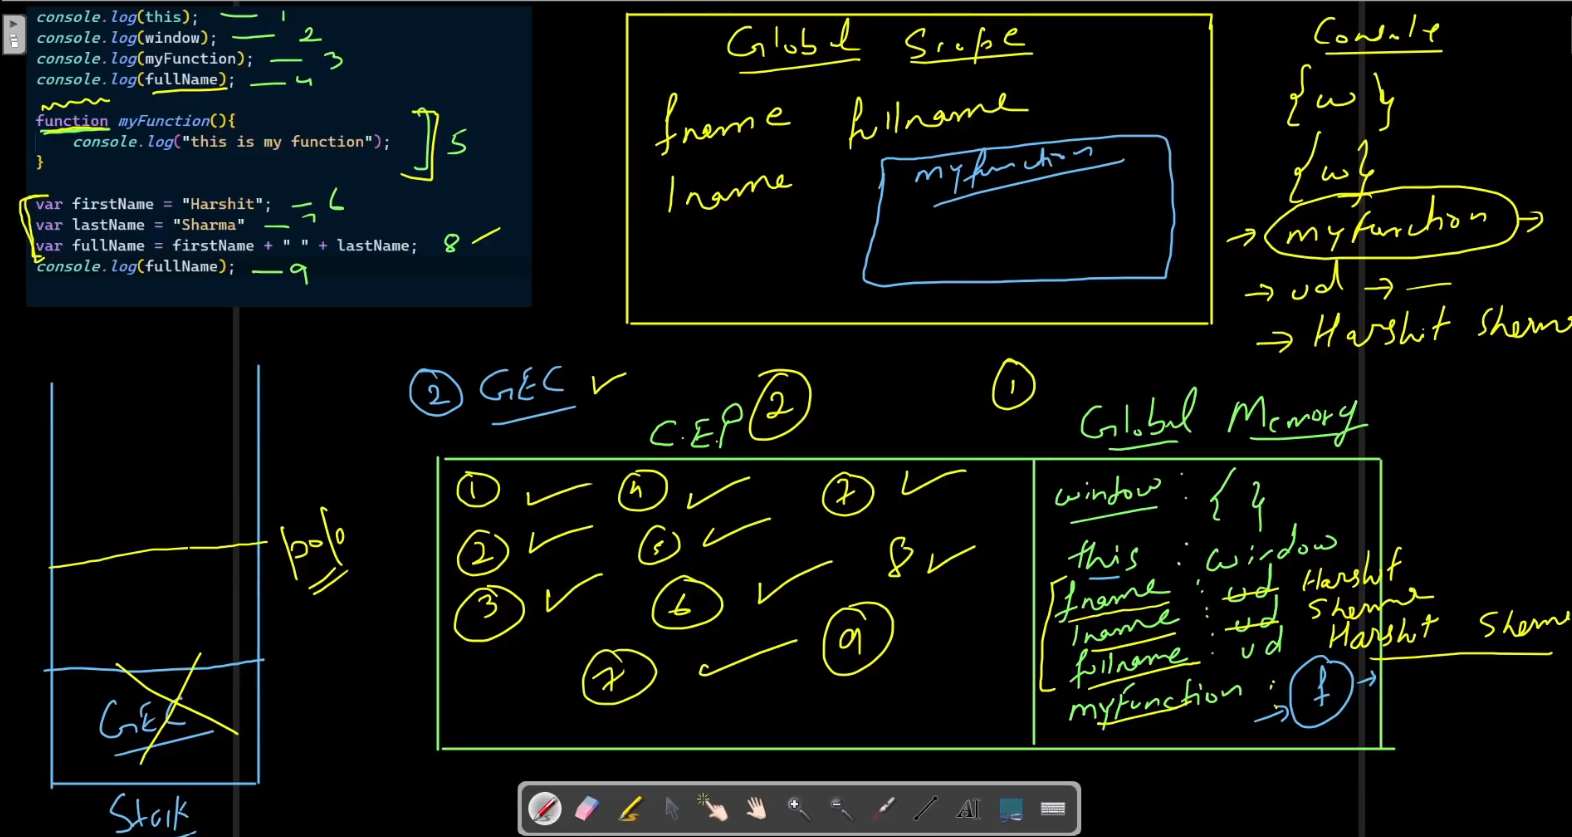 console.log(this); — 1
console.log(window); — 2
console.log(myFunction); — 3
console.log(fullName); — 4
function myFunction(){
console.log("this is my function");
}
5
var firstName = "Harshit"; — 6
var lastName = "Sharma" — 7
var fullName = firstName + " " + lastName; 8
console.log(fullName); — 9
Global Scope
fname fullname
lname
myfunction
Console
{w}
{w}
→ myfunction →
→ ud → —
→ Harshit Sharma
② GEC ✓
C.E.P ②
①
Global Memory
① ✓ ④ ✓ ⑦ ✓
② ✓ ⑤ ✓ 8 ✓
③ ✓ ⑥ ✓ ⑨
⑦ ✓
window : { }
this : window
fname : ud Harshit
lname : ud Sharma
fullname : ud Harshit Sharma
myfunction : → f →
GEC
Stack
AI